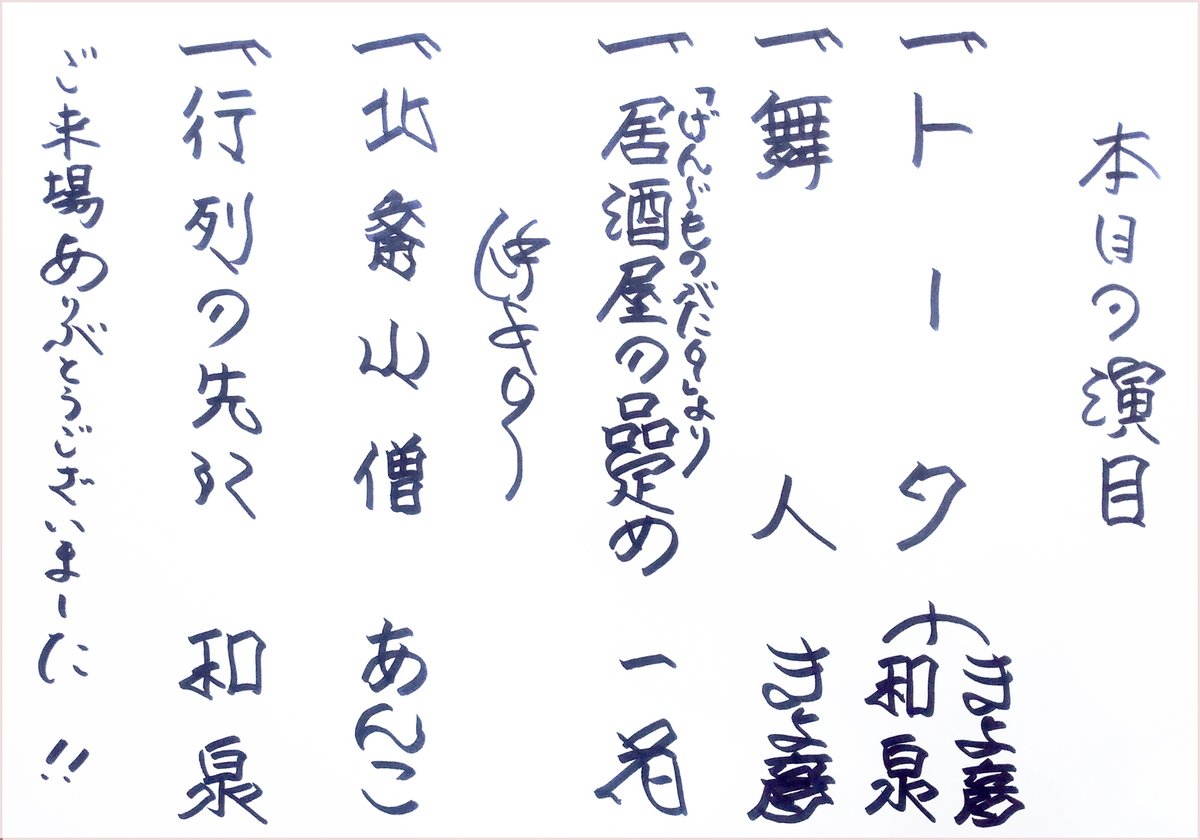 本日の演目
一、トーク きよ彦 和泉
一、舞人 きよ彦
一、「げんじものがたり」より
居酒屋の品定め 一花
仲入り
一、北斎山僧 あんこ
一、行列の先に 和泉
ご来場ありがとうございました!!